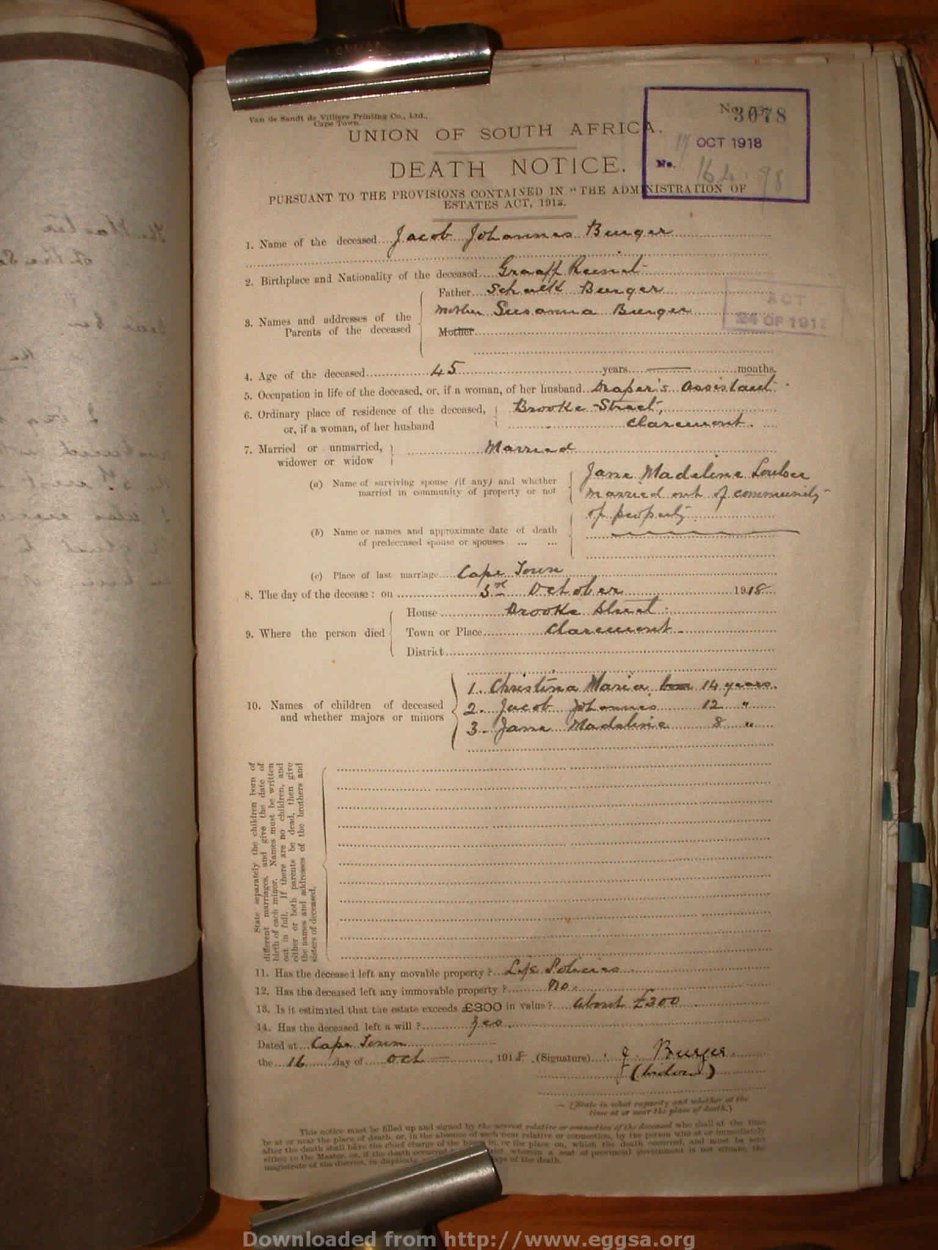 Van de Sandt de Villiers Printing Co., Ltd.,
Cape Town.
UNION OF SOUTH AFRICA.
No. 3078
OCT 1918
No.
DEATH NOTICE.
PURSUANT TO THE PROVISIONS CONTAINED IN "THE ADMINISTRATION OF
ESTATES ACT, 1913.
1. Name of the deceased Jacob Johannes Burger
2. Birthplace and Nationality of the deceased Graaff Reinet
3. Names and addresses of the Parents of the deceased
Father Schalk Burger
Mother Susanna Burger
Mother
ACT
24 OF 1913
4. Age of the deceased 45 years — months.
5. Occupation in life of the deceased, or, if a woman, of her husband Draper's Assistant
6. Ordinary place of residence of the deceased, Brooke Street,
or, if a woman, of her husband Claremont.
7. Married or unmarried, Married
widower or widow
(a) Name of surviving spouse (if any) and whether married in community of property or not
Jane Madeline Loubser
married out of community
of property
(b) Name or names and approximate date of death
of predeceased spouse or spouses ... ...
(c) Place of last marriage Cape Town
8. The day of the decease : on October 1918
9. Where the person died
House Brooke Street
Town or Place Claremont
District
10. Names of children of deceased
and whether majors or minors
1. Christina Maria 14 years.
2. Jacob Johannes 12 "
3. Jane Madeline 8 "
State separately the children born of
different marriages, and give the date of
birth of each minor. Names must be written
out in full. If there are no children, and
either or both parents be dead, then give
the names and addresses of the brothers and
sisters of deceased.
11. Has the deceased left any movable property ? Life Policies
12. Has the deceased left any immovable property ? No.
13. Is it estimated that the estate exceeds £300 in value ? About £300
14. Has the deceased left a will ? Yes
Dated at Cape Town
the 16 day of Oct , 1918 (Signature) J Burger
(Widow)
(State in what capacity and whether at the
time at or near the place of death.)
This notice must be filled up and signed by the nearest relative or connection of the deceased who shall at the time
be at or near the place of death, or, in the absence of such near relative or connection, by the person who at or immediately
after the death shall have the chief charge of the house in, or the place on, which the death occurred, and must be sent
either to the Master, or, if the death occurred wherein a seat of provincial government is not situate, the
magistrate of the district, in duplicate, days of the death.
Downloaded from http://www.eggsa.org